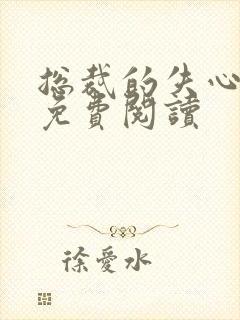 總裁的失心
免費閱讀
徐愛水